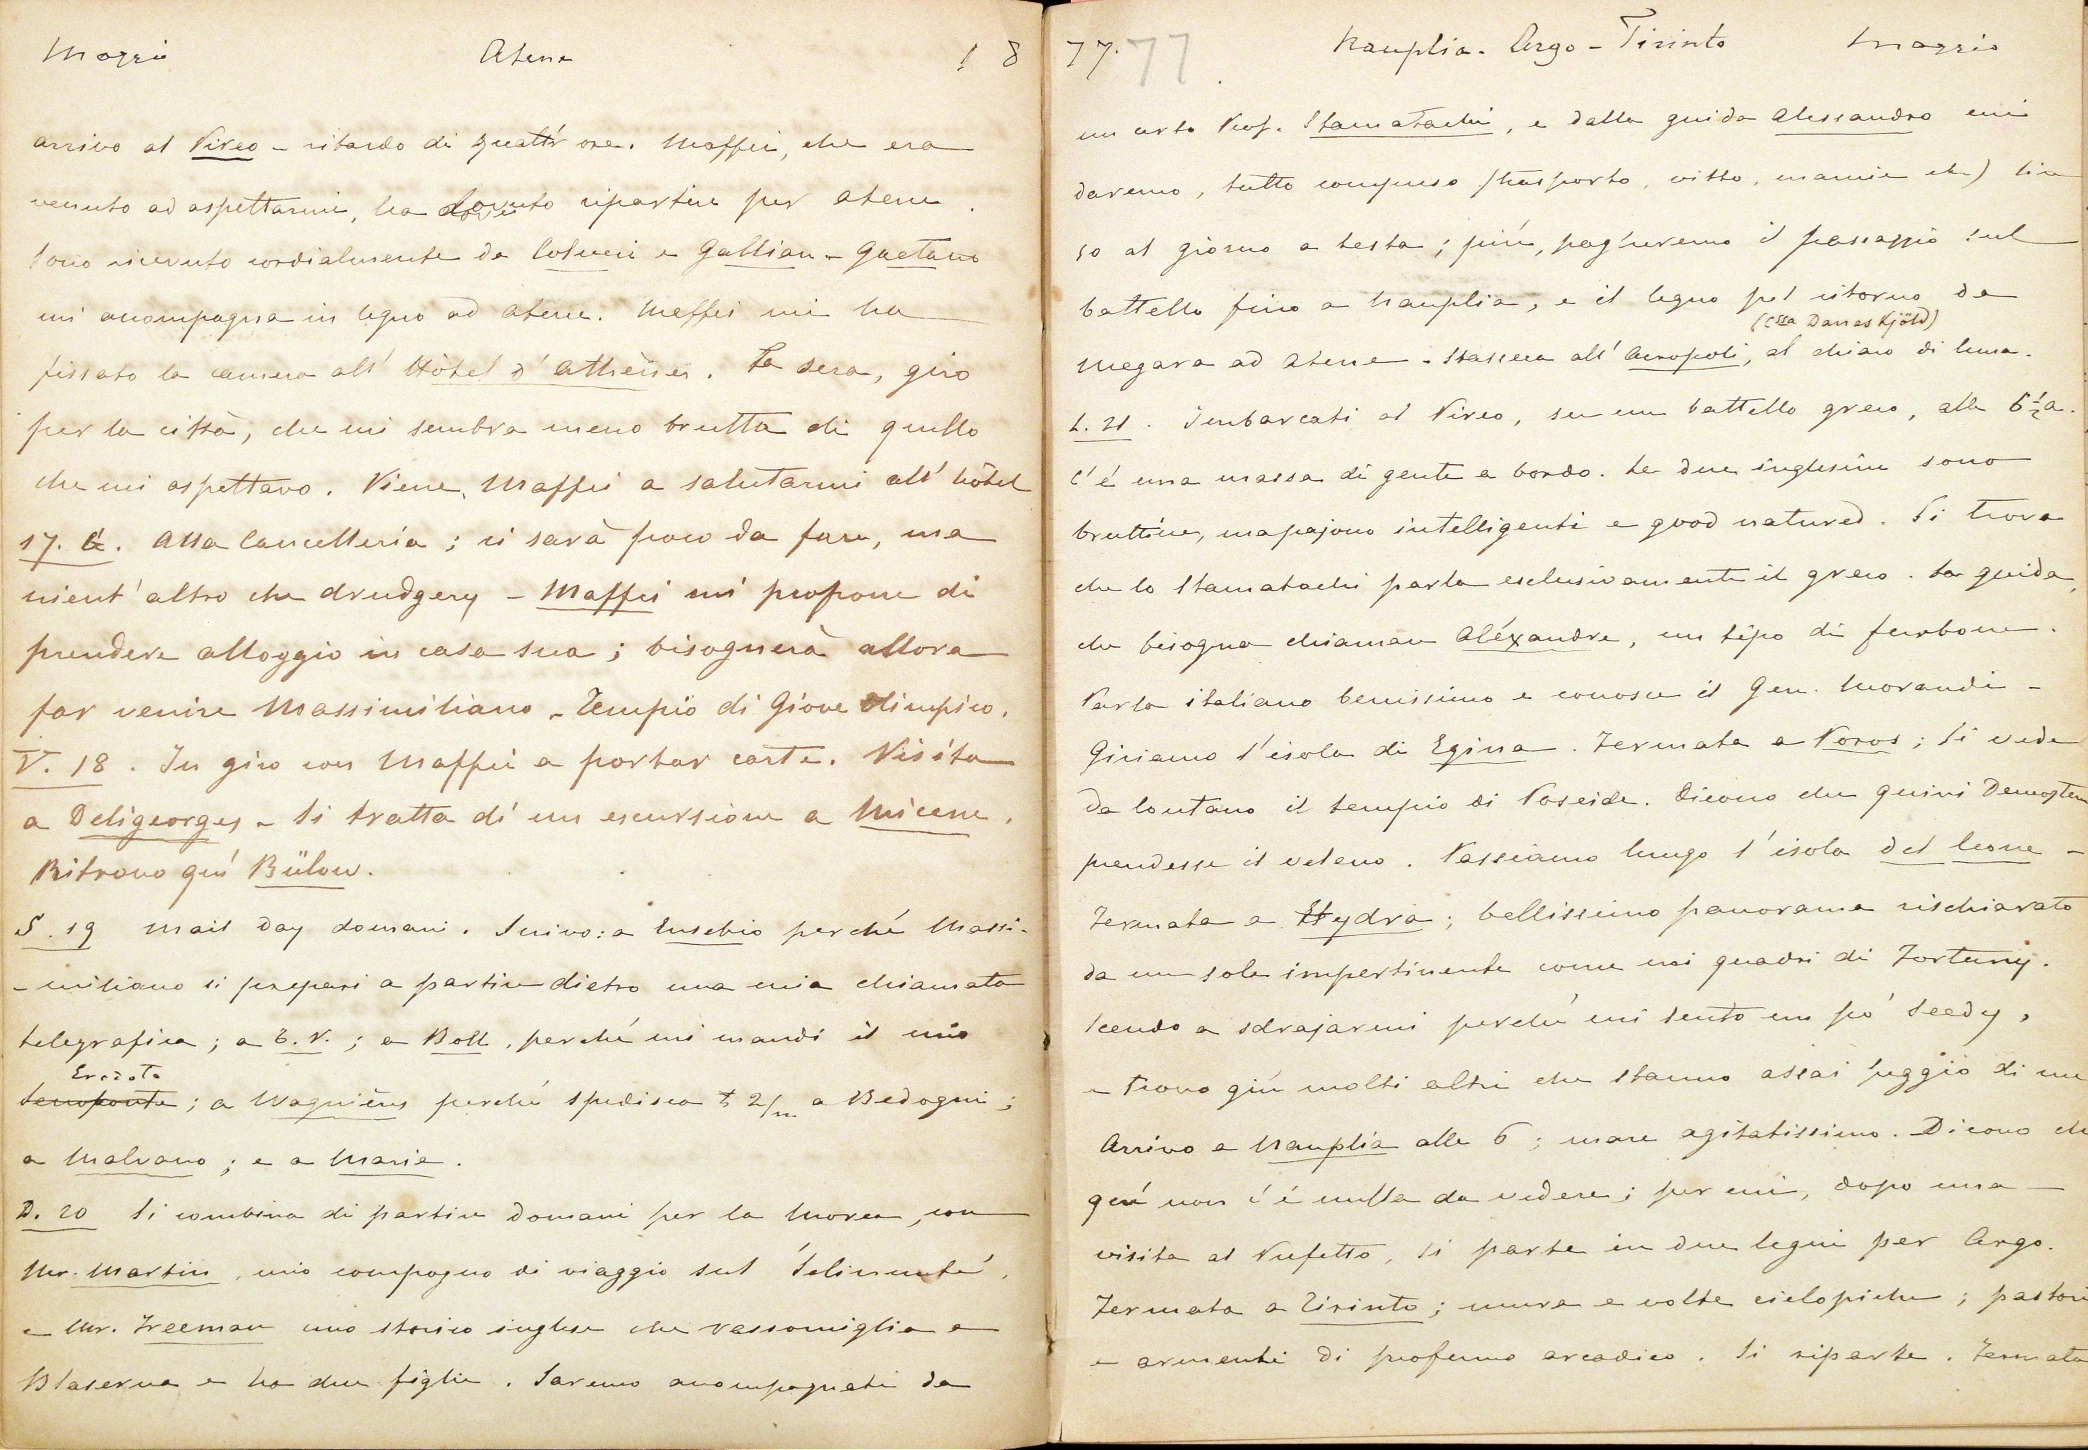 Maggio Atene 18
arrivo al Pireo – ritardo di quattr'ore. Maffei, che era
venuto ad aspettarmi, ha dovuto ripartire per Atene.
Sono ricevuto cordialmente da Colucci e Gallian – Gaetano
mi accompagna in legno ad Atene. Maffei mi ha
fissato la camera all' Hôtel d'Athènes. La sera, giro
per la città, che mi sembra meno brutta di quello
che mi aspettavo. Viene Maffei a salutarmi all' hôtel
17. G. Alla Cancelleria; ci sarà poco da fare, ma
nient'altro che drudgery – Maffei mi propone di
prendere alloggio in casa sua; bisognerà allora
far venire Massimiliano – Tempio di Giove Olimpico.
V. 18. In giro con Maffei a portar carte. Visita
a Deligeorges – Si tratta di un escursione a Micene.
Ritrovo quì Bülow.
S. 19 Mail day domani. Scrivo: a Eusebio perché Massi-
-miliano si prepari a partire dietro una mia chiamata
telegrafica; a E. V.; a Boll, perché mi mandi il mio
Erodoto
Senofonte; a Wagnières perché spedisca £ 2/m a Bedogni;
a Malvano; e a Maria.
D. 20 Si combina di partire domani per la Morea, con
Mr. Martin, mio compagno di viaggio sul 'Sélinunte',
e Mr. Freeman uno storico inglese che rassomiglia a
Blaserna e ha due figlie. Saremo accompagnati da
77. 77 Nauplia – Argo – Tirinto Maggio
un certo Prof. Stamatachi, e dalla guida Alessandro cui
daremo, tutto compreso (trasporto, vitto, mancie etc) lire
50 al giorno a testa; più, pagheremo il passaggio sul
battello fino a Nauplia, e il legno pel ritorno da
(Cssa Danneskjöld)
Megara ad Atene – Stassera all' Acropoli, al chiaro di luna.
L. 21. Imbarcati al Pireo, su un battello greco, alle 6 ½ a.
C'é una massa di gente a bordo. Le due inglesine sono
bruttine, ma pajono intelligenti e good natured. Si trova
che lo Stamatachi parla esclusivamente il greco. La guida,
che bisogna chiamare Aléxandre, un tipo di furbone.
Parla italiano benissimo e conosce il Gen. Morandi –
Giriamo l'isola di Egina. Fermata a Poros; si vede
da lontano il tempio di Poseide. Dicono che quivi Demostene
prendesse il veleno. Passiamo lungo l'isola del leone –
Fermata a Hydra; bellissimo panorama rischiarato
da un sole impertinente come nei quadri di Fortuny.
Scendo a sdrajarmi perché mi sento un po' seedy,
e trovo giù molti altri che stanno assai peggio di me
Arrivo a Nauplia alle 6; mare agitatissimo. Dicono che
quì non c'é nulla da vedere; per cui, dopo una
visita al Prefetto, si parte in due legni per Argo.
Fermata a Tirinto; mura e volte ciclopiche; pastori
e armenti di profumo arcadico. Si riparte. Fermata